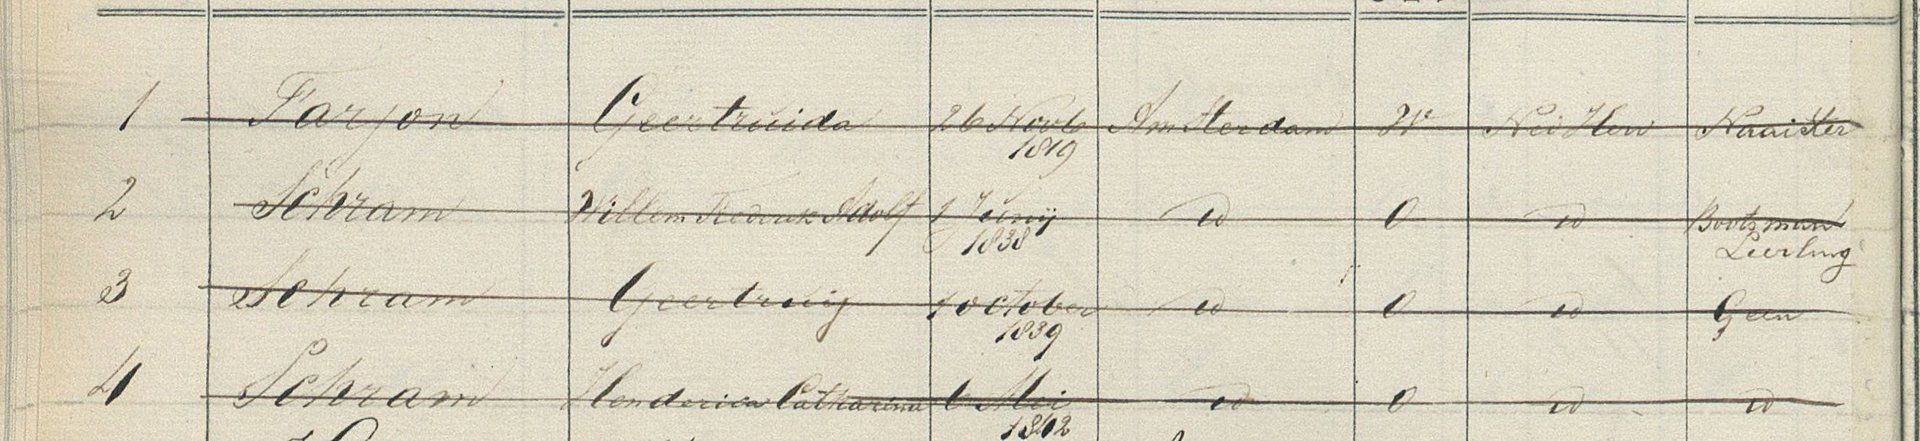 1 Farjon Geertruida 26 Novb Amsterdam W Ned Herv Naaister
1819
2 Schram Willem Fredrik Adolf 1 Junij id O id Bootsman
1838 Leerling
3 Schram Geertruij 1 October id O id Geen
1839
4 Schram Henderica Catharina 6 Mei id O id id
1842